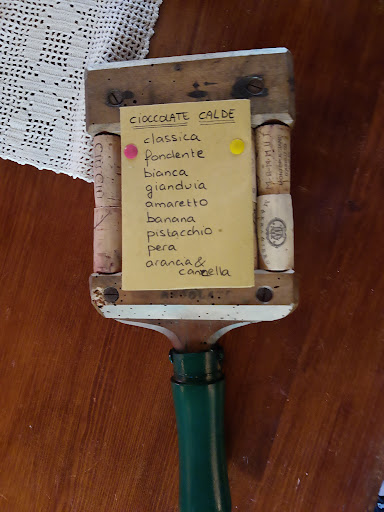 CIOCCOLATE CALDE
classica
fondente
bianca
gianduia
amaretto
banana
pistacchio
pera
arancia &
cannella